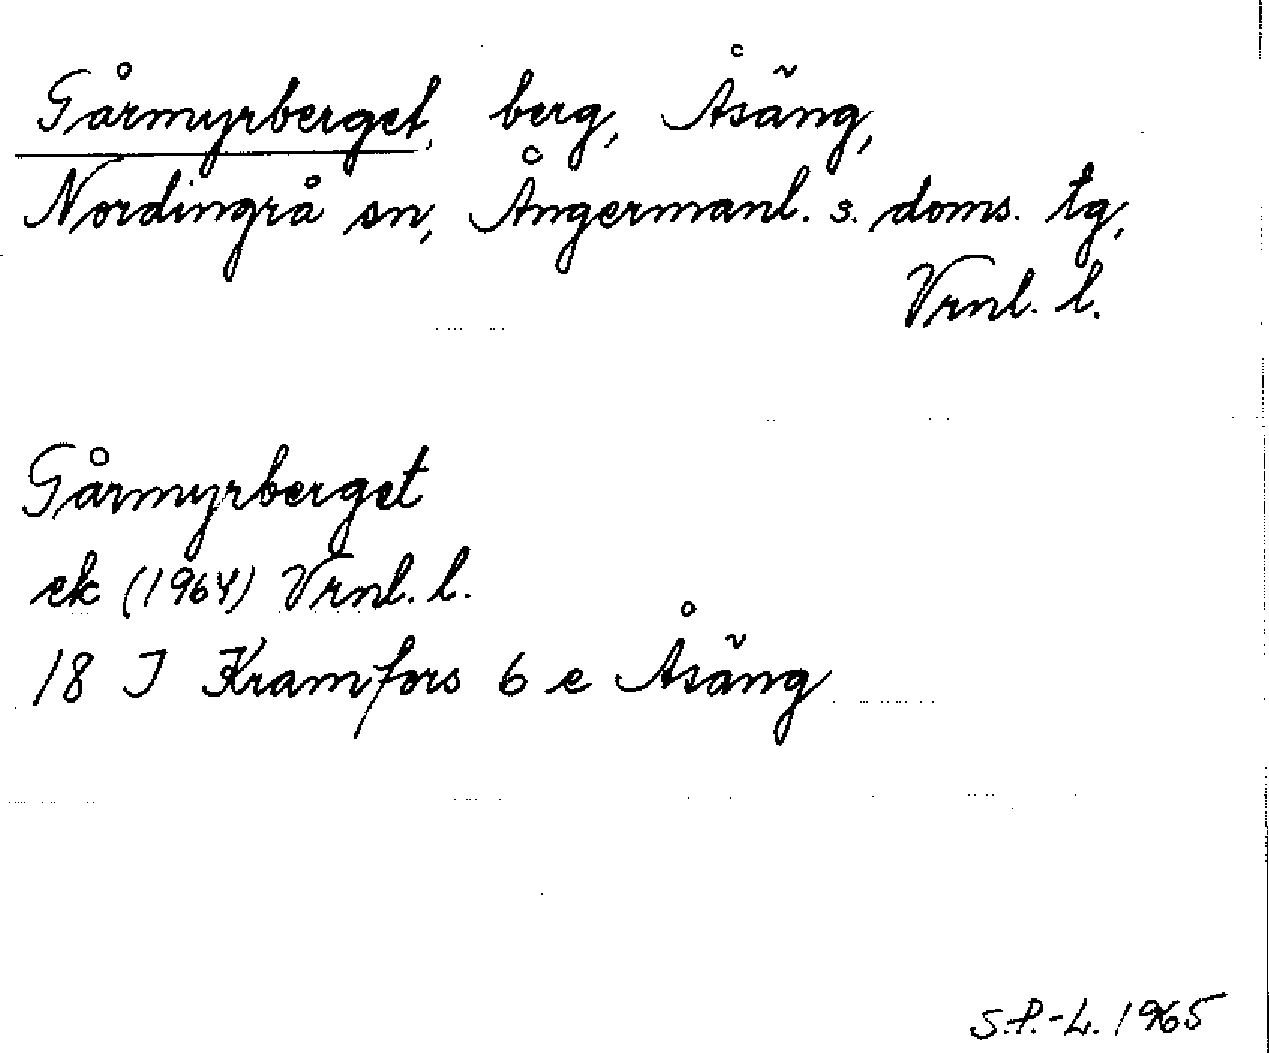 Gårmyrberget, berg, Åsäng,
Nordingrå sn, Ångermanl. s. doms. tg,
Vrnl. l.
Gårmyrberget
ek (1964) Vrnl. l.
18 I Kramfors 6 e Åsäng
S.P.-L. 1965